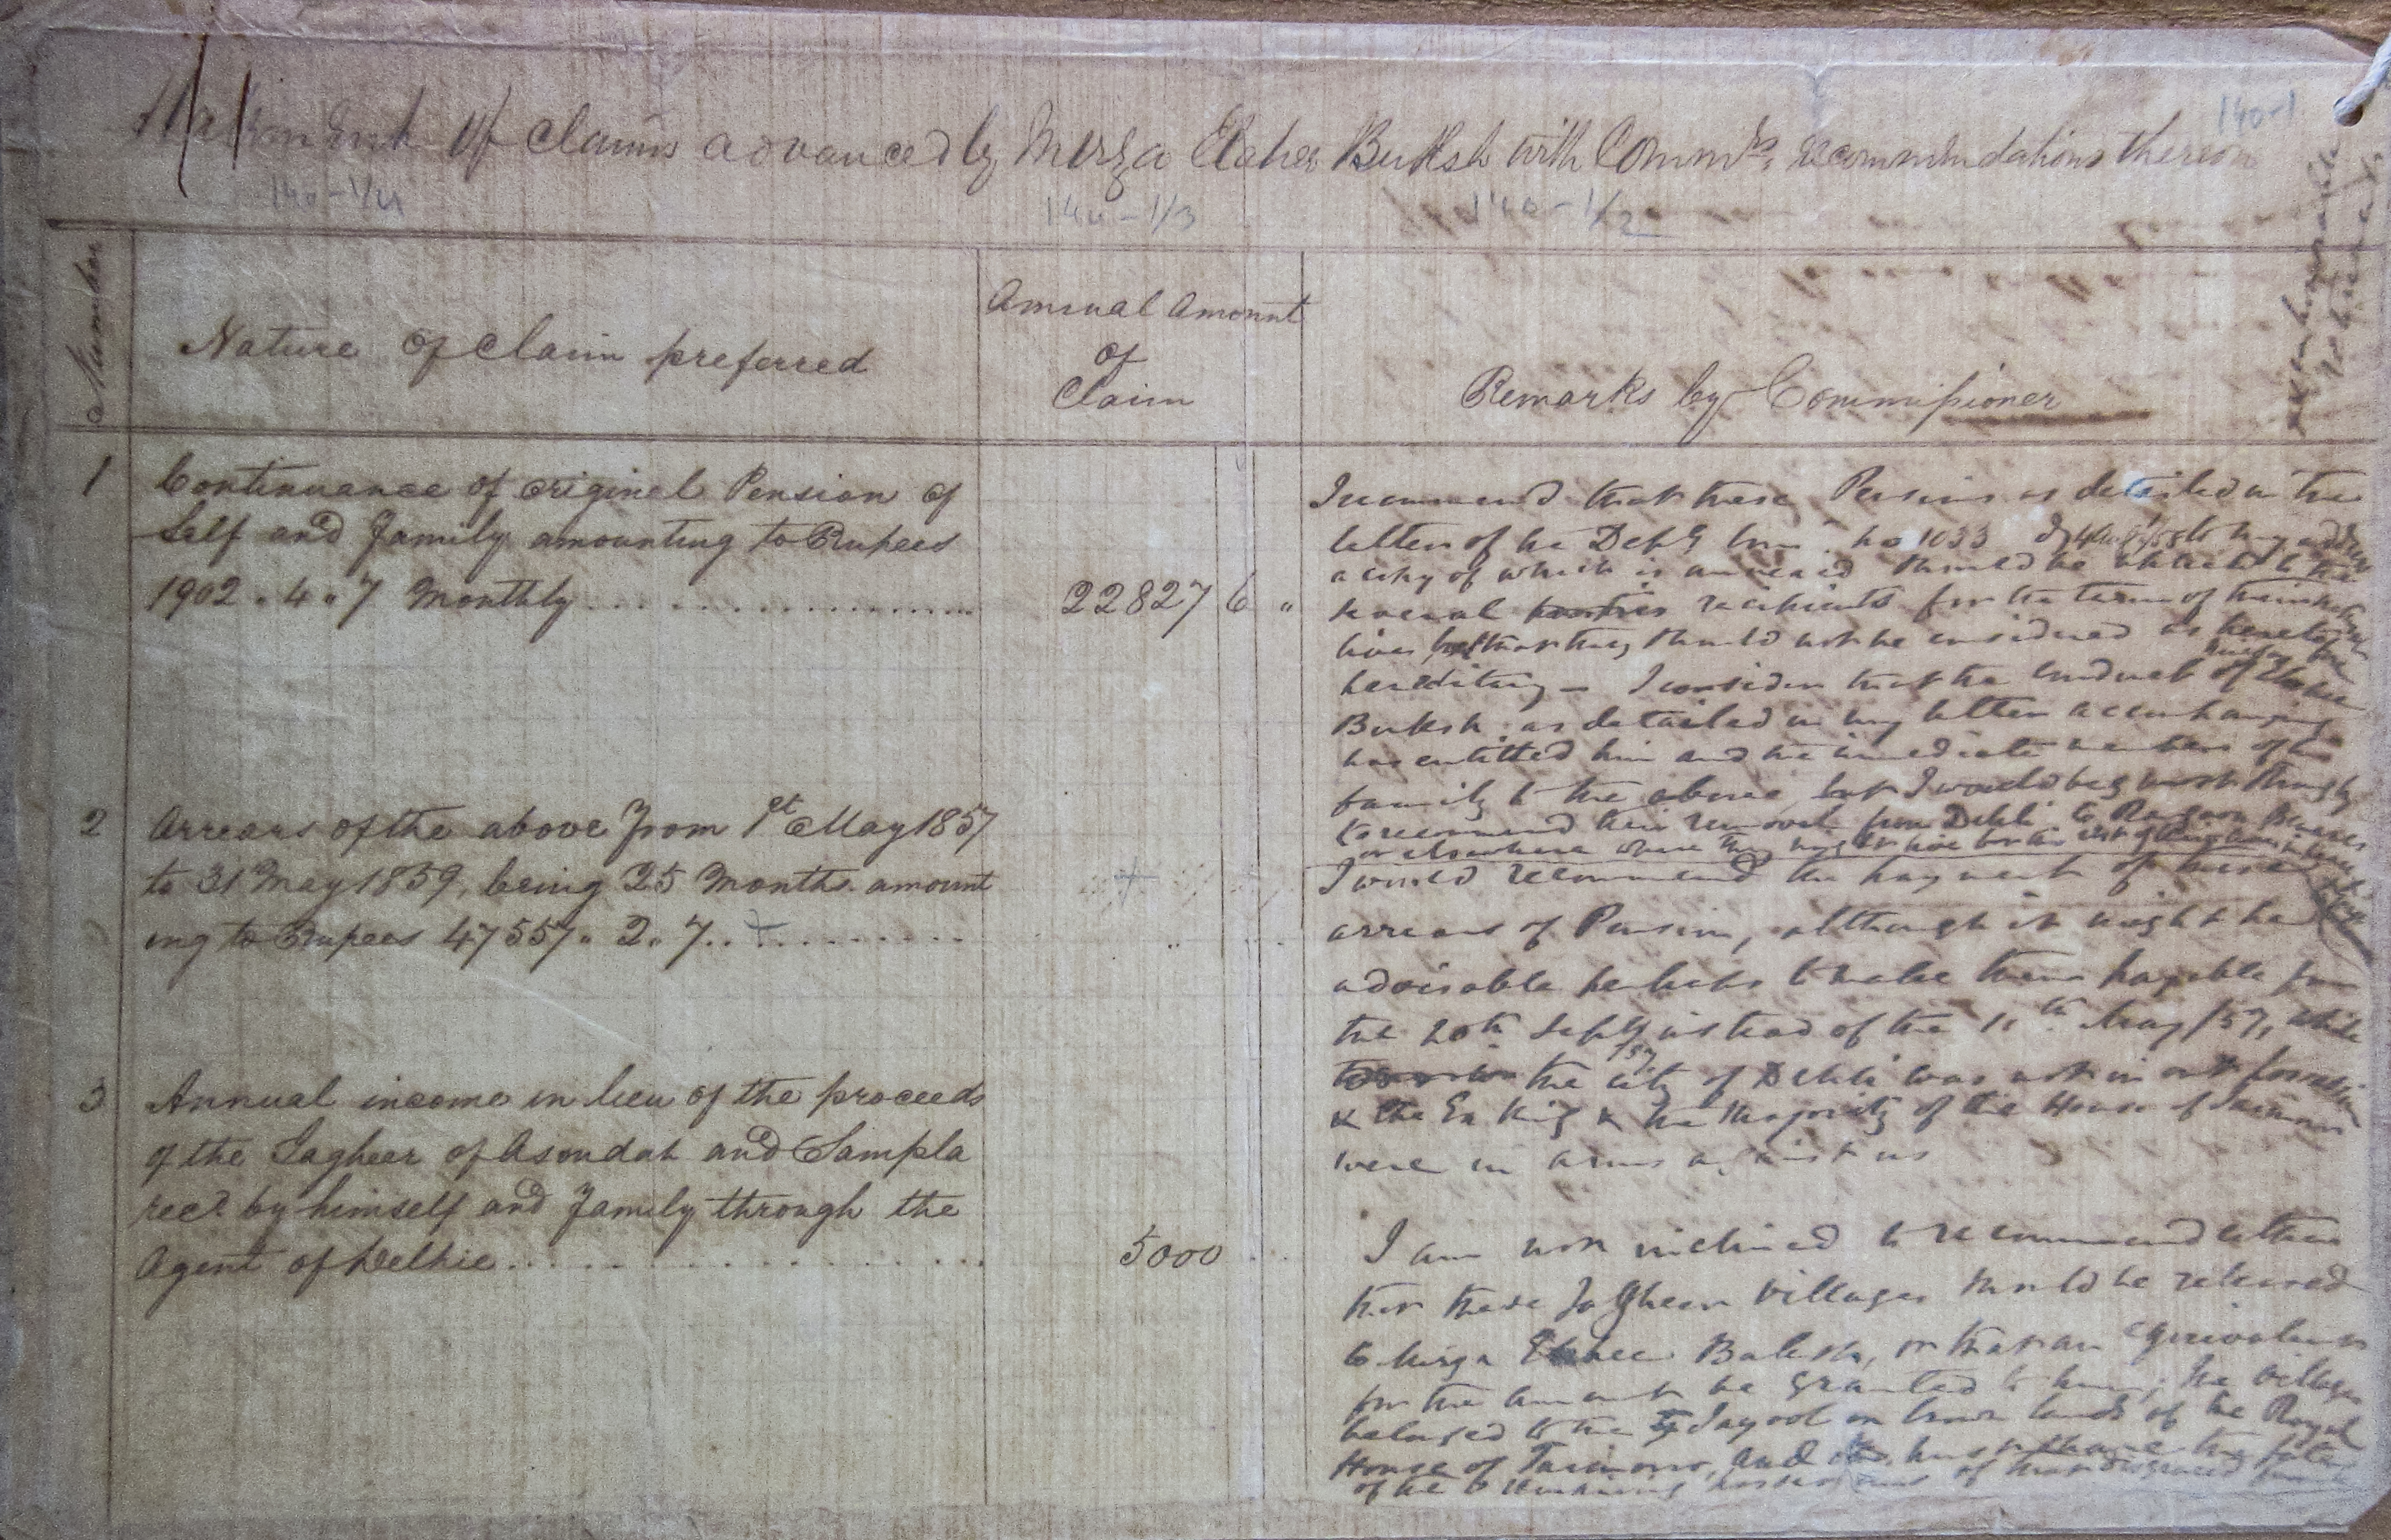 Statement of claims advanced by Mirza Elahee Buksh with Commrs. recommendations thereon
140-1
140-1/4
140-1/3
140-1/2
Number
Nature of Claim preferred
Annual Amount
of
Claim
Remarks by Commissioner
1
Continuance of original Pension of
Self and Family amounting to Rupees
1902 . 4 . 7 Monthly
22827 6 "
I recommend that these Pensions as detailed in the
letter of the Depy Com. No 1033
a copy of which is annexed should be
several recipients for the term of their
lives but that they should not be considered as
hereditary – I consider that the conduct of
Buksh as detailed in my letter accompanying
has entitled him and the immediate members of his
family to the above, but I would beg most strongly
to recommend their removal from Dehli to Rangoon Benares
or elsewhere where they might live for the rest of their lives
2
Arrears of the above from 1st May 1857
to 31 May 1859, being 25 Months amount
ing to Rupees 47557 . 2 . 7
I would recommend the payment of these
arrears of Pension, although it might be
advisable perhaps to make them payable from
the 20th Septr instead of the 11th May /57, while
/57
the city of Dehli was not in our possession
& the Ex King & the Majority of the House of Taimour
were in arms against us
3
Annual income in lieu of the proceeds
of the Jagheer of Asoudah and Sampla
recd by himself and family through the
Agent of Delhie
5000
I am not inclined to recommend either
that these Jagheer villages should be released
to Mirza Elahee Buksh, or that an equivalent
for the amount be granted to him; the villages
belonged to the Tayool or Crown lands of the Royal
House of Taimour, and must share the fate
of the remaining possessions of that disgraced family